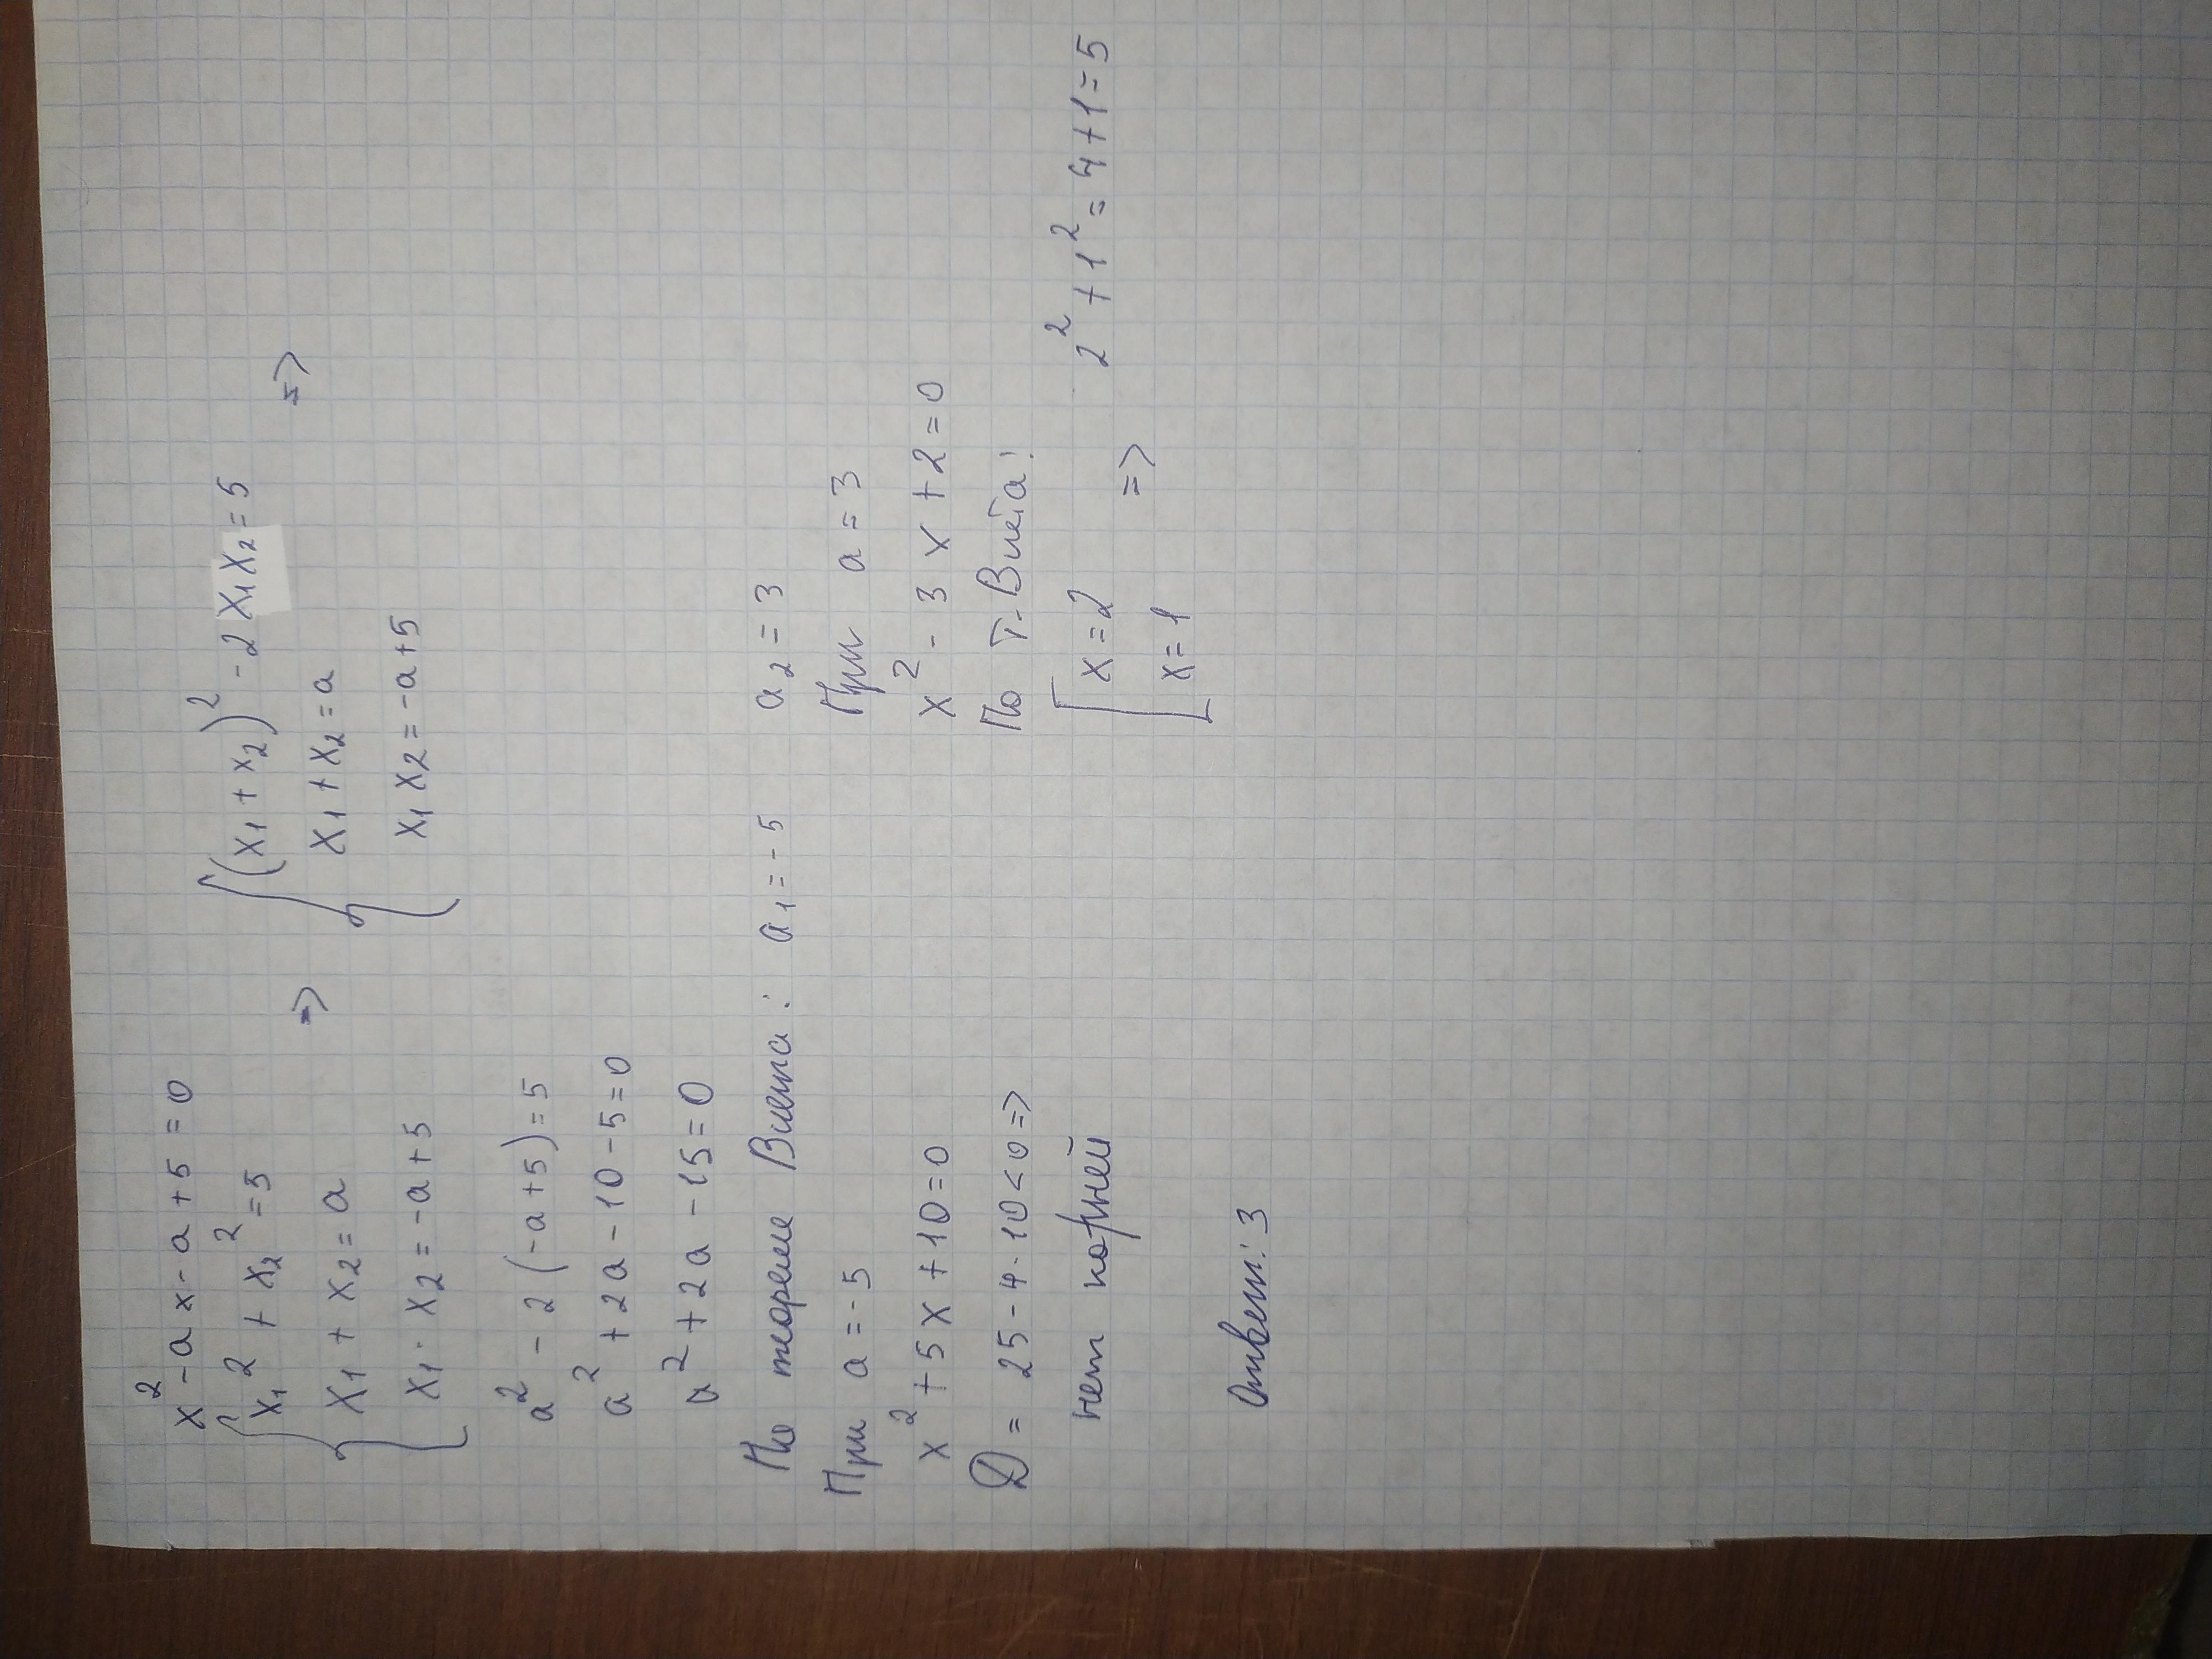 x² - ax - a + 5 = 0
{ x₁² + x₂² = 5
x₁ + x₂ = a =>
x₁ · x₂ = -a + 5
{ (x₁ + x₂)² - 2x₁x₂ = 5
x₁ + x₂ = a =>
x₁x₂ = -a + 5
a² - 2(-a + 5) = 5
a² + 2a - 10 - 5 = 0
a² + 2a - 15 = 0
По теореме Виета: a₁ = -5 a₂ = 3
При a = -5
x² + 5x + 10 = 0
D = 25 - 4 · 10 < 0 =>
нет корней
При a = 3
x² - 3x + 2 = 0
По т. Виета:
[ x = 2
x = 1 => 2² + 1² = 4 + 1 = 5
Ответ: 3